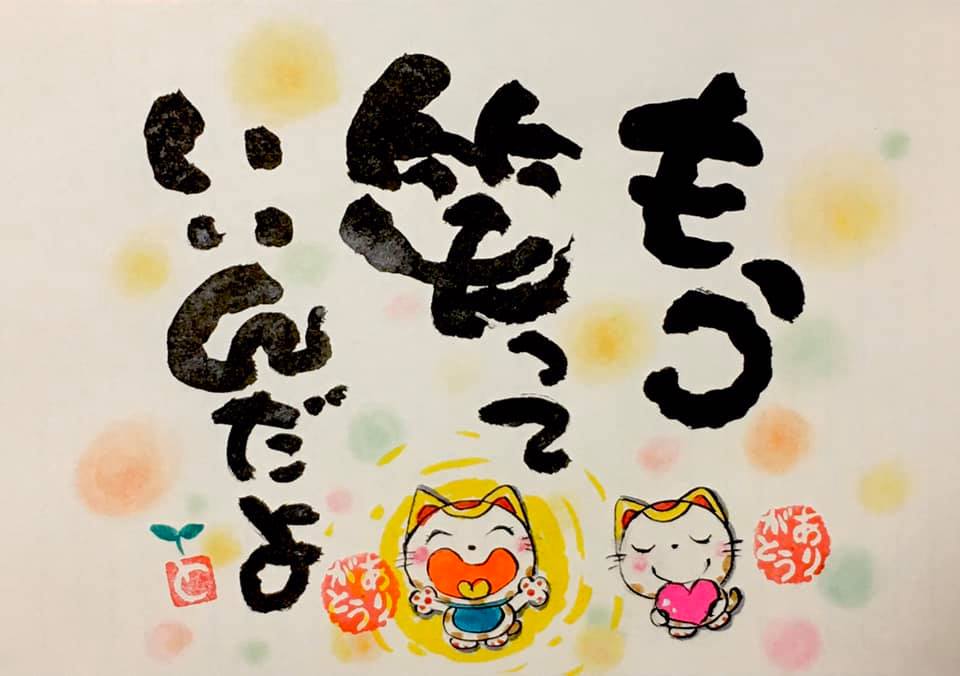 もう
笑って
いいんだよ
ありがとう
ありがとう
と